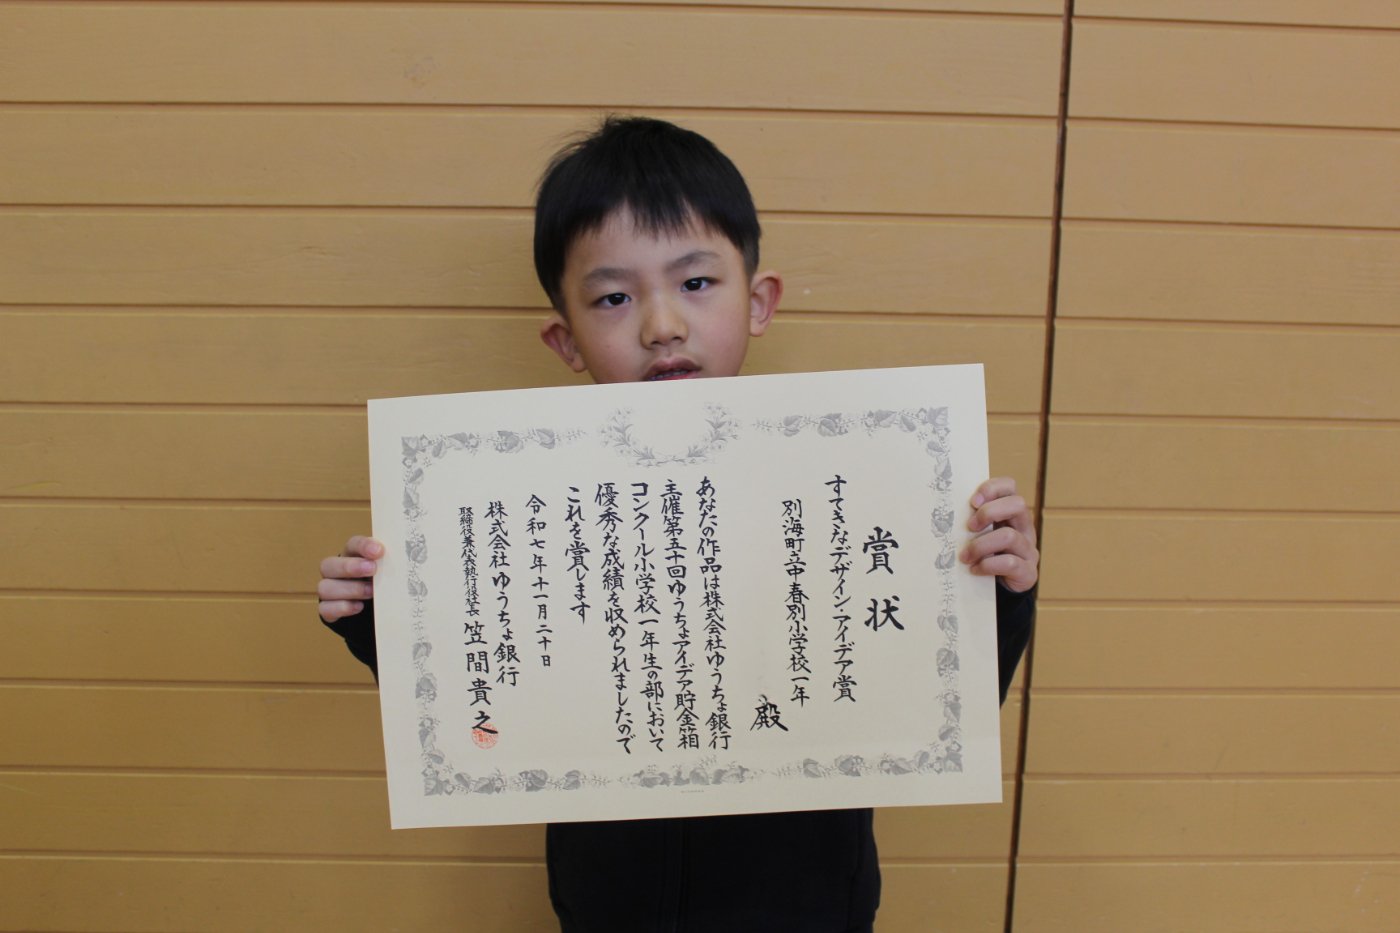 賞状
すてきなデザイン・アイデア賞
別海町立中春別小学校一年
殿
あなたの作品は株式会社ゆうちょ銀行
主催第五十回ゆうちょアイデア貯金箱
コンクール小学校一年生の部において
優秀な成績を収められましたので
これを賞します
令和七年十一月二十日
株式会社ゆうちょ銀行
取締役兼代表執行役社長 笠間貴之